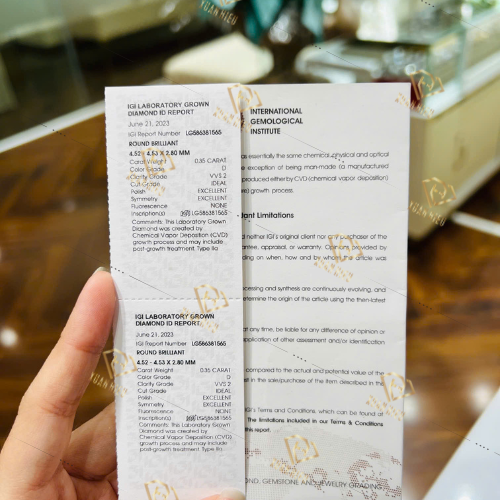 IGI LABORATORY GROWN
DIAMOND ID REPORT
June 21, 2023
IGI Report Number LG586381565
ROUND BRILLIANT
4.52 - 4.53 X 2.80 MM
Carat Weight 0.35 CARAT
Color Grade D
Clarity Grade VVS 2
Cut Grade IDEAL
Polish EXCELLENT
Symmetry EXCELLENT
Fluorescence NONE
Inscription(s) LG586381565
Comments: This Laboratory Grown
Diamond was created by
Chemical Vapor Deposition (CVD)
growth process and may include
post-growth treatment. Type IIa
IGI LABORATORY GROWN
DIAMOND ID REPORT
June 21, 2023
IGI Report Number LG586381565
ROUND BRILLIANT
4.52 - 4.53 X 2.80 MM
Carat Weight 0.35 CARAT
Color Grade D
Clarity Grade VVS 2
Cut Grade IDEAL
Polish EXCELLENT
Symmetry EXCELLENT
Fluorescence NONE
Inscription(s) LG586381565
Comments: This Laboratory Grown
Diamond was created by
Chemical Vapor Deposition (CVD)
growth process and may include
post-growth treatment. Type IIa
INTERNATIONAL
GEMOLOGICAL
INSTITUTE
as essentially the same chemical, physical and optical
exception of being man-made (a manufactured
produced either by CVD (chemical vapor deposition)
growth process.
tant Limitations
neither IGI's original client nor any purchaser of the
antee, appraisal, or warranty. Opinions provided by
ding on when, how and by whom the article was
cessing and synthesis are continuously evolving, and
etermine the origin of the article using the then-latest
at any time, be liable for any difference of opinion or
application of other assessment and/or identification
compared to the actual and potential value of the
st in the sale/purchase of the item described in the
IGI's Terms and Conditions, which can be found at
The limitations included in our Terms & Conditions
this report.
OND, GEMSTONE AND JEWELRY GRADING
XUAN HIEU